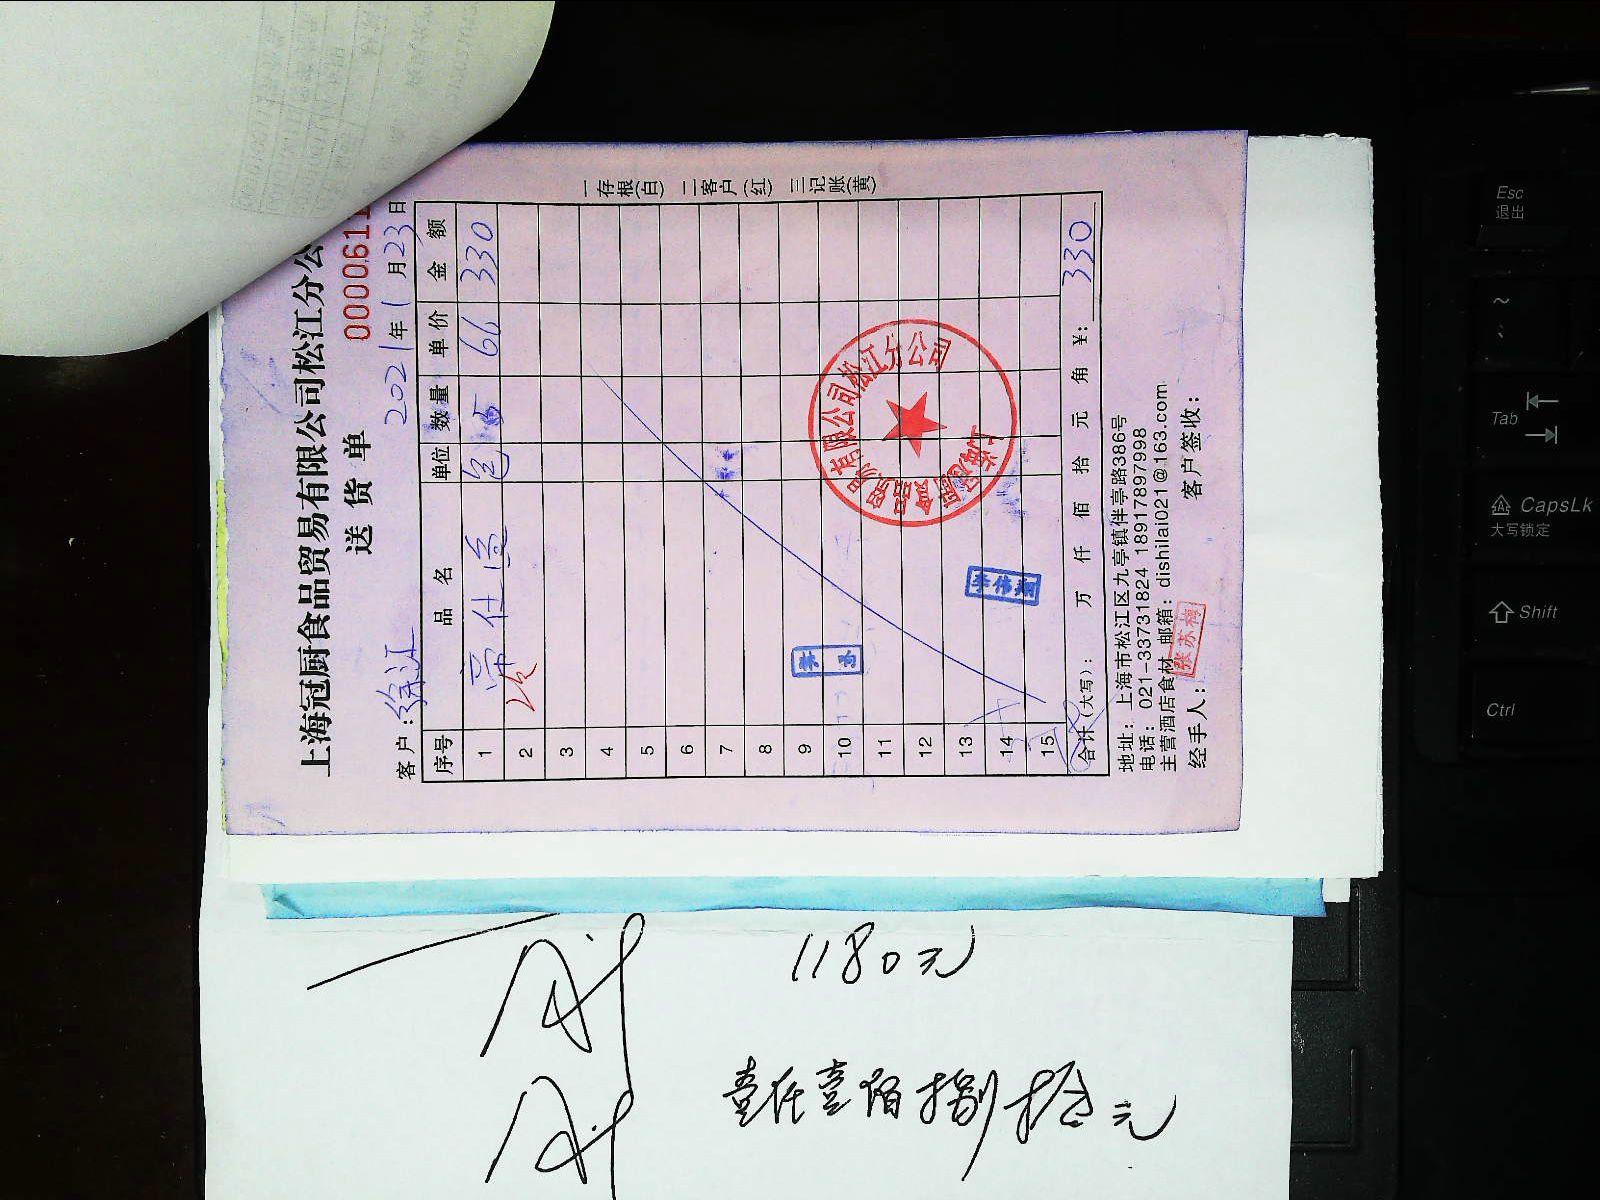 上海冠厨食品贸易有限公司松江分公
送货单
0000611
客户：徐江
2021年1月23日
序号 品名 单位 数量 单价 金额
1 包 5 66 330
2
3
4
5
6
7
8
9
10
11
12
13
14
15
合计(大写)： 万 仟 佰 拾 元 角 ¥: 330
地址：上海市松江区九亭镇伴亭路386号
电话：021-33731824 18917897998
主营酒店食材 邮箱：dishilai021@163.com
经手人： 客户签收：
一存根(白) 二客户(红) 三记账(黄)
上海冠厨食品贸易有限公司松江分公司
李伟翔
张苏梅
1180元
壹仟壹佰捌拾元
Esc
退出
Tab
CapsLk
大写锁定
Shift
Ctrl